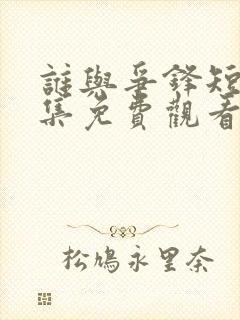 誰與爭鋒短
集免費觀看
松鳩永里奈